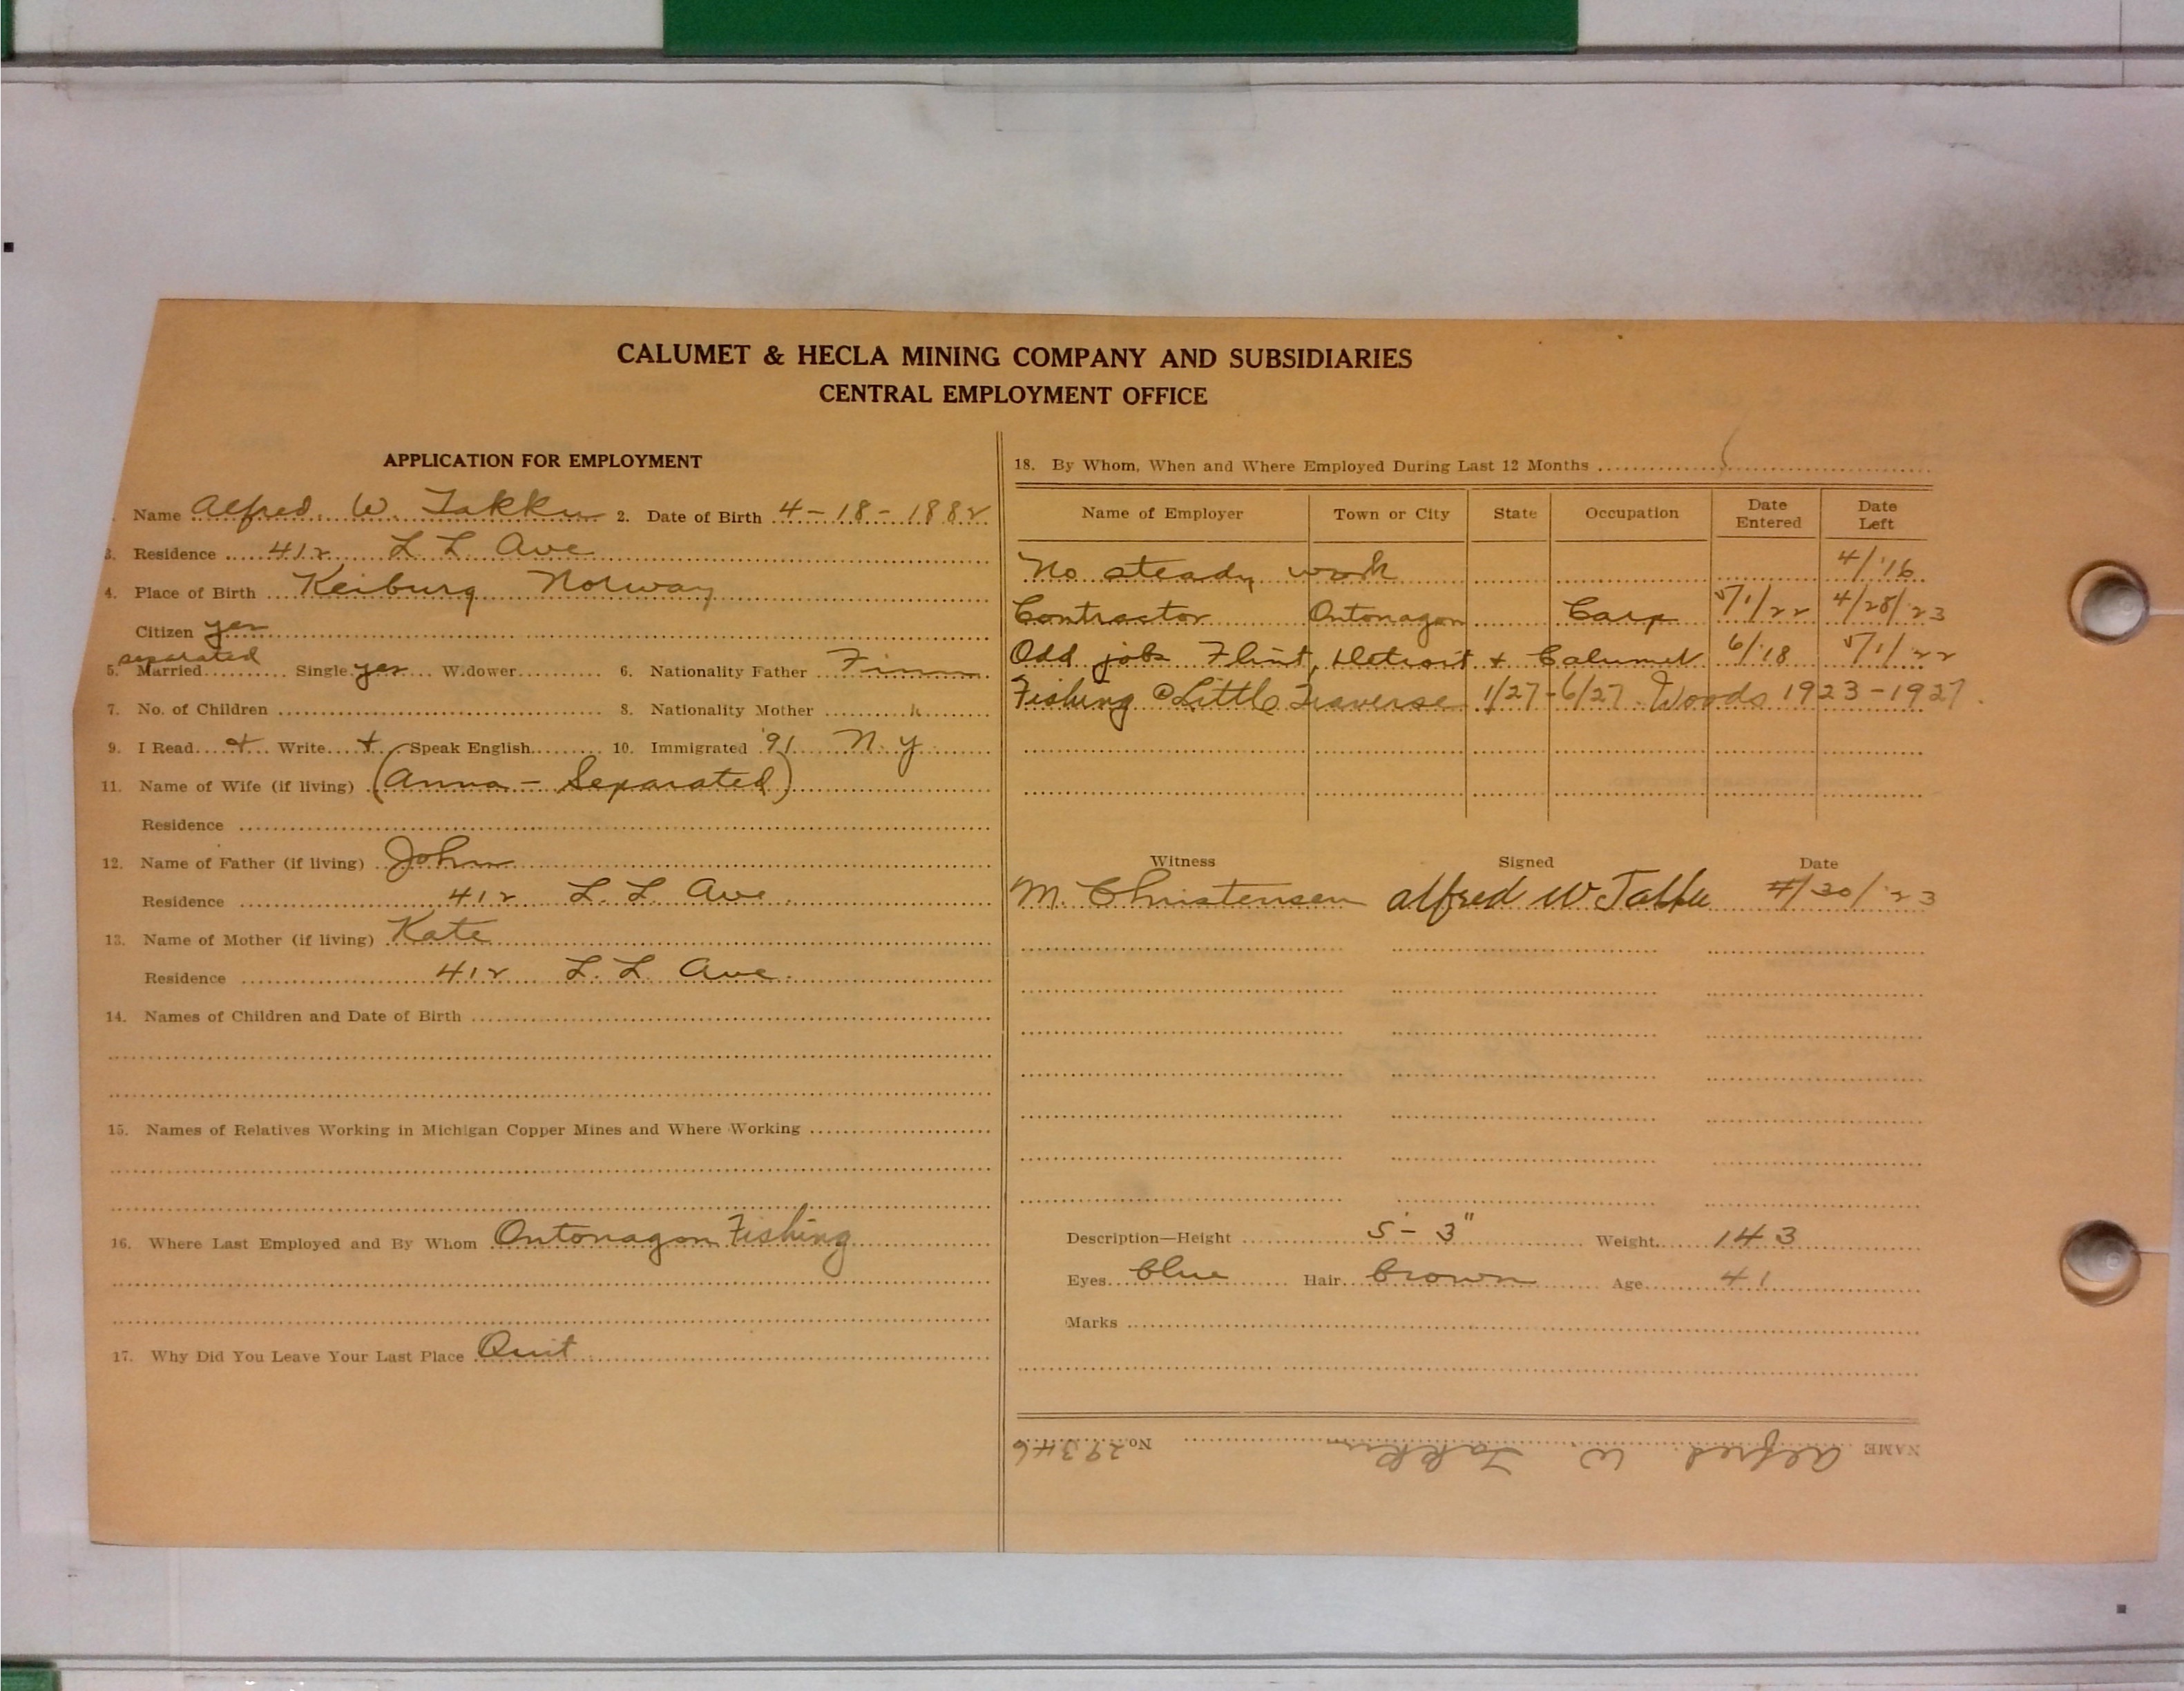 CALUMET & HECLA MINING COMPANY AND SUBSIDIARIES
CENTRAL EMPLOYMENT OFFICE
APPLICATION FOR EMPLOYMENT
Name Alfred. W. Takku 2. Date of Birth 4-18-1882
3. Residence 412 L L Ave
4. Place of Birth Keiburg Norway
Citizen yes
separated
5. Married Single yes Widower 6. Nationality Father Finn
7. No. of Children 8. Nationality Mother "
9. I Read + Write + Speak English 10. Immigrated '91 N.Y.
11. Name of Wife (if living) (Anna - Separated)
Residence
12. Name of Father (if living) John
Residence 412 L. L. Ave
13. Name of Mother (if living) Kate
Residence 412 L. L. Ave.
14. Names of Children and Date of Birth
15. Names of Relatives Working in Michigan Copper Mines and Where Working
16. Where Last Employed and By Whom Ontonagon Fishing
17. Why Did You Leave Your Last Place Quit
18. By Whom, When and Where Employed During Last 12 Months
Name of Employer Town or City State Occupation Date Entered Date Left
No steady work 4/'16
Contractor Ontonagon Carp 7/1/22 4/28/23
Odd jobs Flint, Detroit + Calumet 6/18 7/1/22
Fishing @ Little Traverse 1/27-6/27. Woods 1923-1927.
Witness Signed Date
M. Christensen Alfred W Takku 4/30/'23
Description—Height 5'-3" Weight 143
Eyes blue Hair brown Age 41
Marks
NAME Alfred W. Takku No. 29346